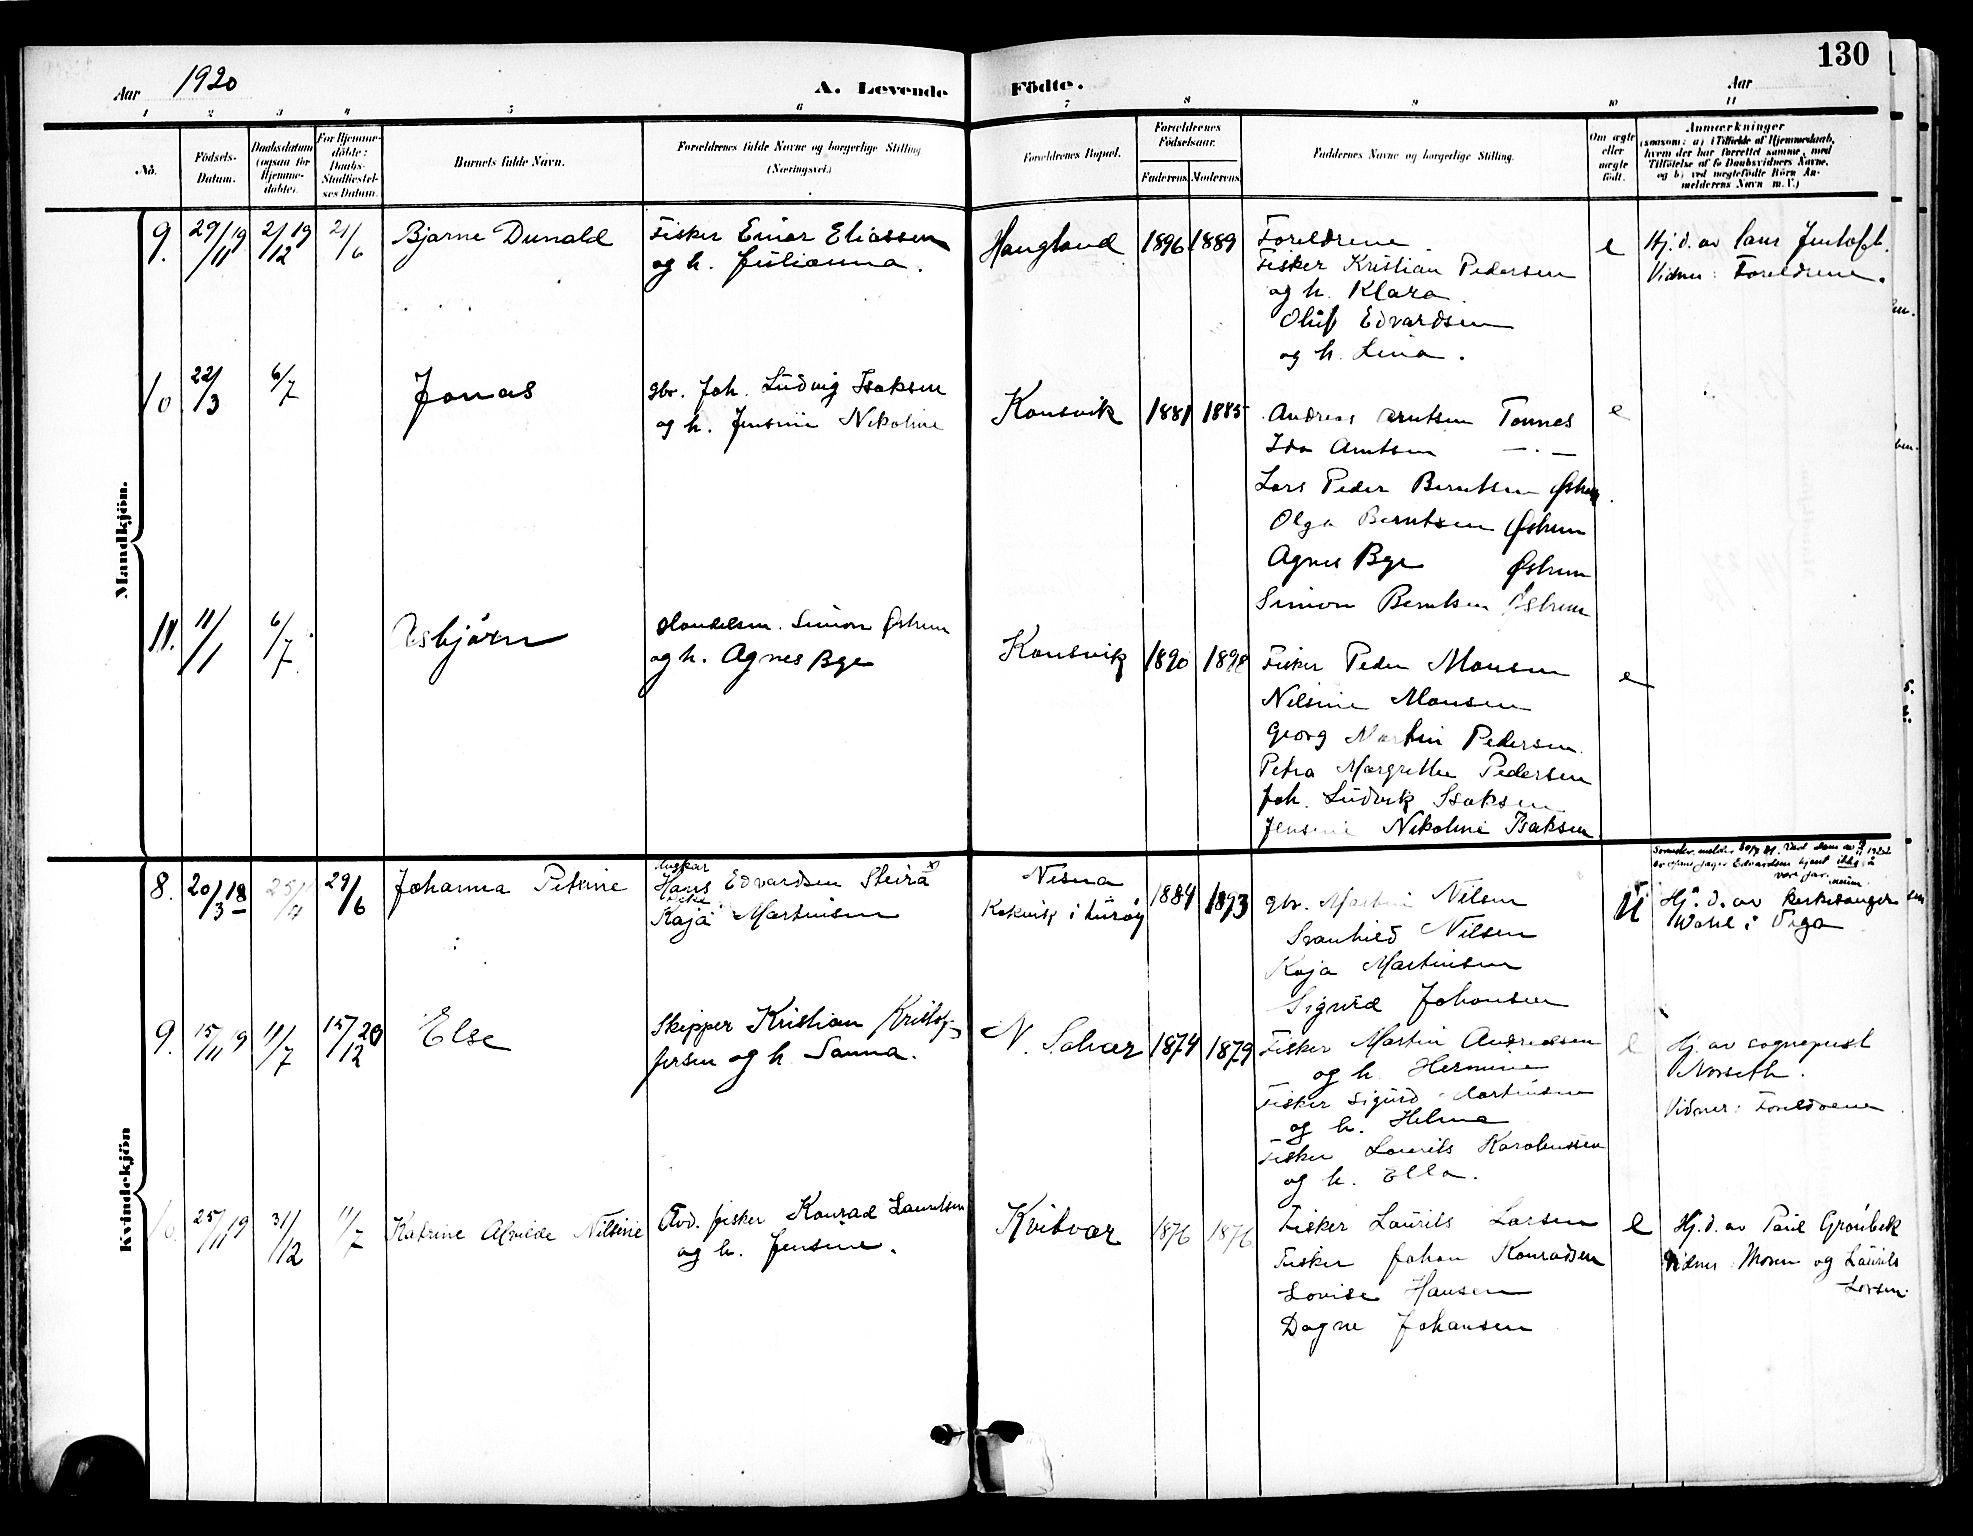 130
Aar 1920
A. Levende Födte.
Aar
1 2 3 4 5 6 7 8 9 10 11
No.
Födsels-Datum.
Daabsdatum (ogsaa for Hjemme-döbte).
For Hjemme-döbte: Daabs-Stadfæstel-ses Datum.
Barnets fulde Navn.
Forældrenes fulde Navne og borgerlige Stilling (Næringsvei.)
Forældrenes Bopæl.
Forældrenes Födselsaar.
Faderens. Moderens.
Faddernes Navne og borgerlige Stilling.
Om ægte eller uægte födt.
Anmærkninger
(saasom: a) i Tilfælde af Hjemmedaab,
hvem der har forrettet samme, med
Tilföielse af to Daabsvidners Navne,
og b) ved uægtefödte Börn An-
melderens Navn m. V.)
Mandkjön.
9. 29/11 19 2/12 19 21/6 Bjarne Dunald
Fisker Einar Eliassen
og h. Julianna.
Haugland 1896 1889
Foreldrene.
Fisker Kristian Pedersen
og h. Klara.
Oluf Edvardsen
og h. Lina.
e
Hj. d. av Lars Jentoft.
Vidner: Foreldrene.
10 22/3 6/7 Jonas
gbr. Joh. Ludvig Isaksen
og h. Jensine Nikoline
Konsvik 1881 1885
Andreas Arntsen Tonnes
Ida Arntsen — . —
Lars Peder Berntsen
Olga Berntsen Østrem
Agnes Bye Østrem
Simon Berntsen Østrem
e
11. 11/1 6/7 Asbjørn
Handelsm. Simon Østrem
og h. Agnes Bye
Konsvik 1890 1898
Fisker Peder Monsen
Nilsine Monsen
Georg Martin Pedersen.
Petra Margrethe Pedersen
Joh. Ludvik Isaksen
Jensine Nikoline Isaksen
e
Kvindekjön
8. 20/3 18 25/4 29/6 Johanna Petrine
Hans Edvardsen Steirå x)
Kaja Martinsen
Nesna
Kokvik i Lurøy 1884 1893
gbr. Martin Nilsen
Svanhild Nilsen
Kaja Martinsen
Sigurd Johansen
U
Hj. d. av kirkesanger
Wahl i Vega
9. 15/11 19 11/7 15/12 20 Else
Skipper Kristian Kristof-
fersen og h. Sanna.
N. Solvær 1874 1879
Fisker Martin Andreassen
og h. Hermine
Fisker Sigurd Martinsen
og h. Helma
Fisker Laurits Karoliussen
og h. Ella.
e
Hj. av sogneprest
Norseth.
Vidner: Foreldrene
10. 25/11 19 31/12 11/7 Katrine Alvilde Nilsine
Avd. fisker Konrad Lauritsen
og h. Jensine.
Kvitvær 1876 1876
Fisker Laurits Larsen
Fisker Johan Konradsen
Lovise Hansen
Dagne Johansen
e
Hj. d. av Paul Grønbek
Vidner: Moren og Laurits
Larsen.